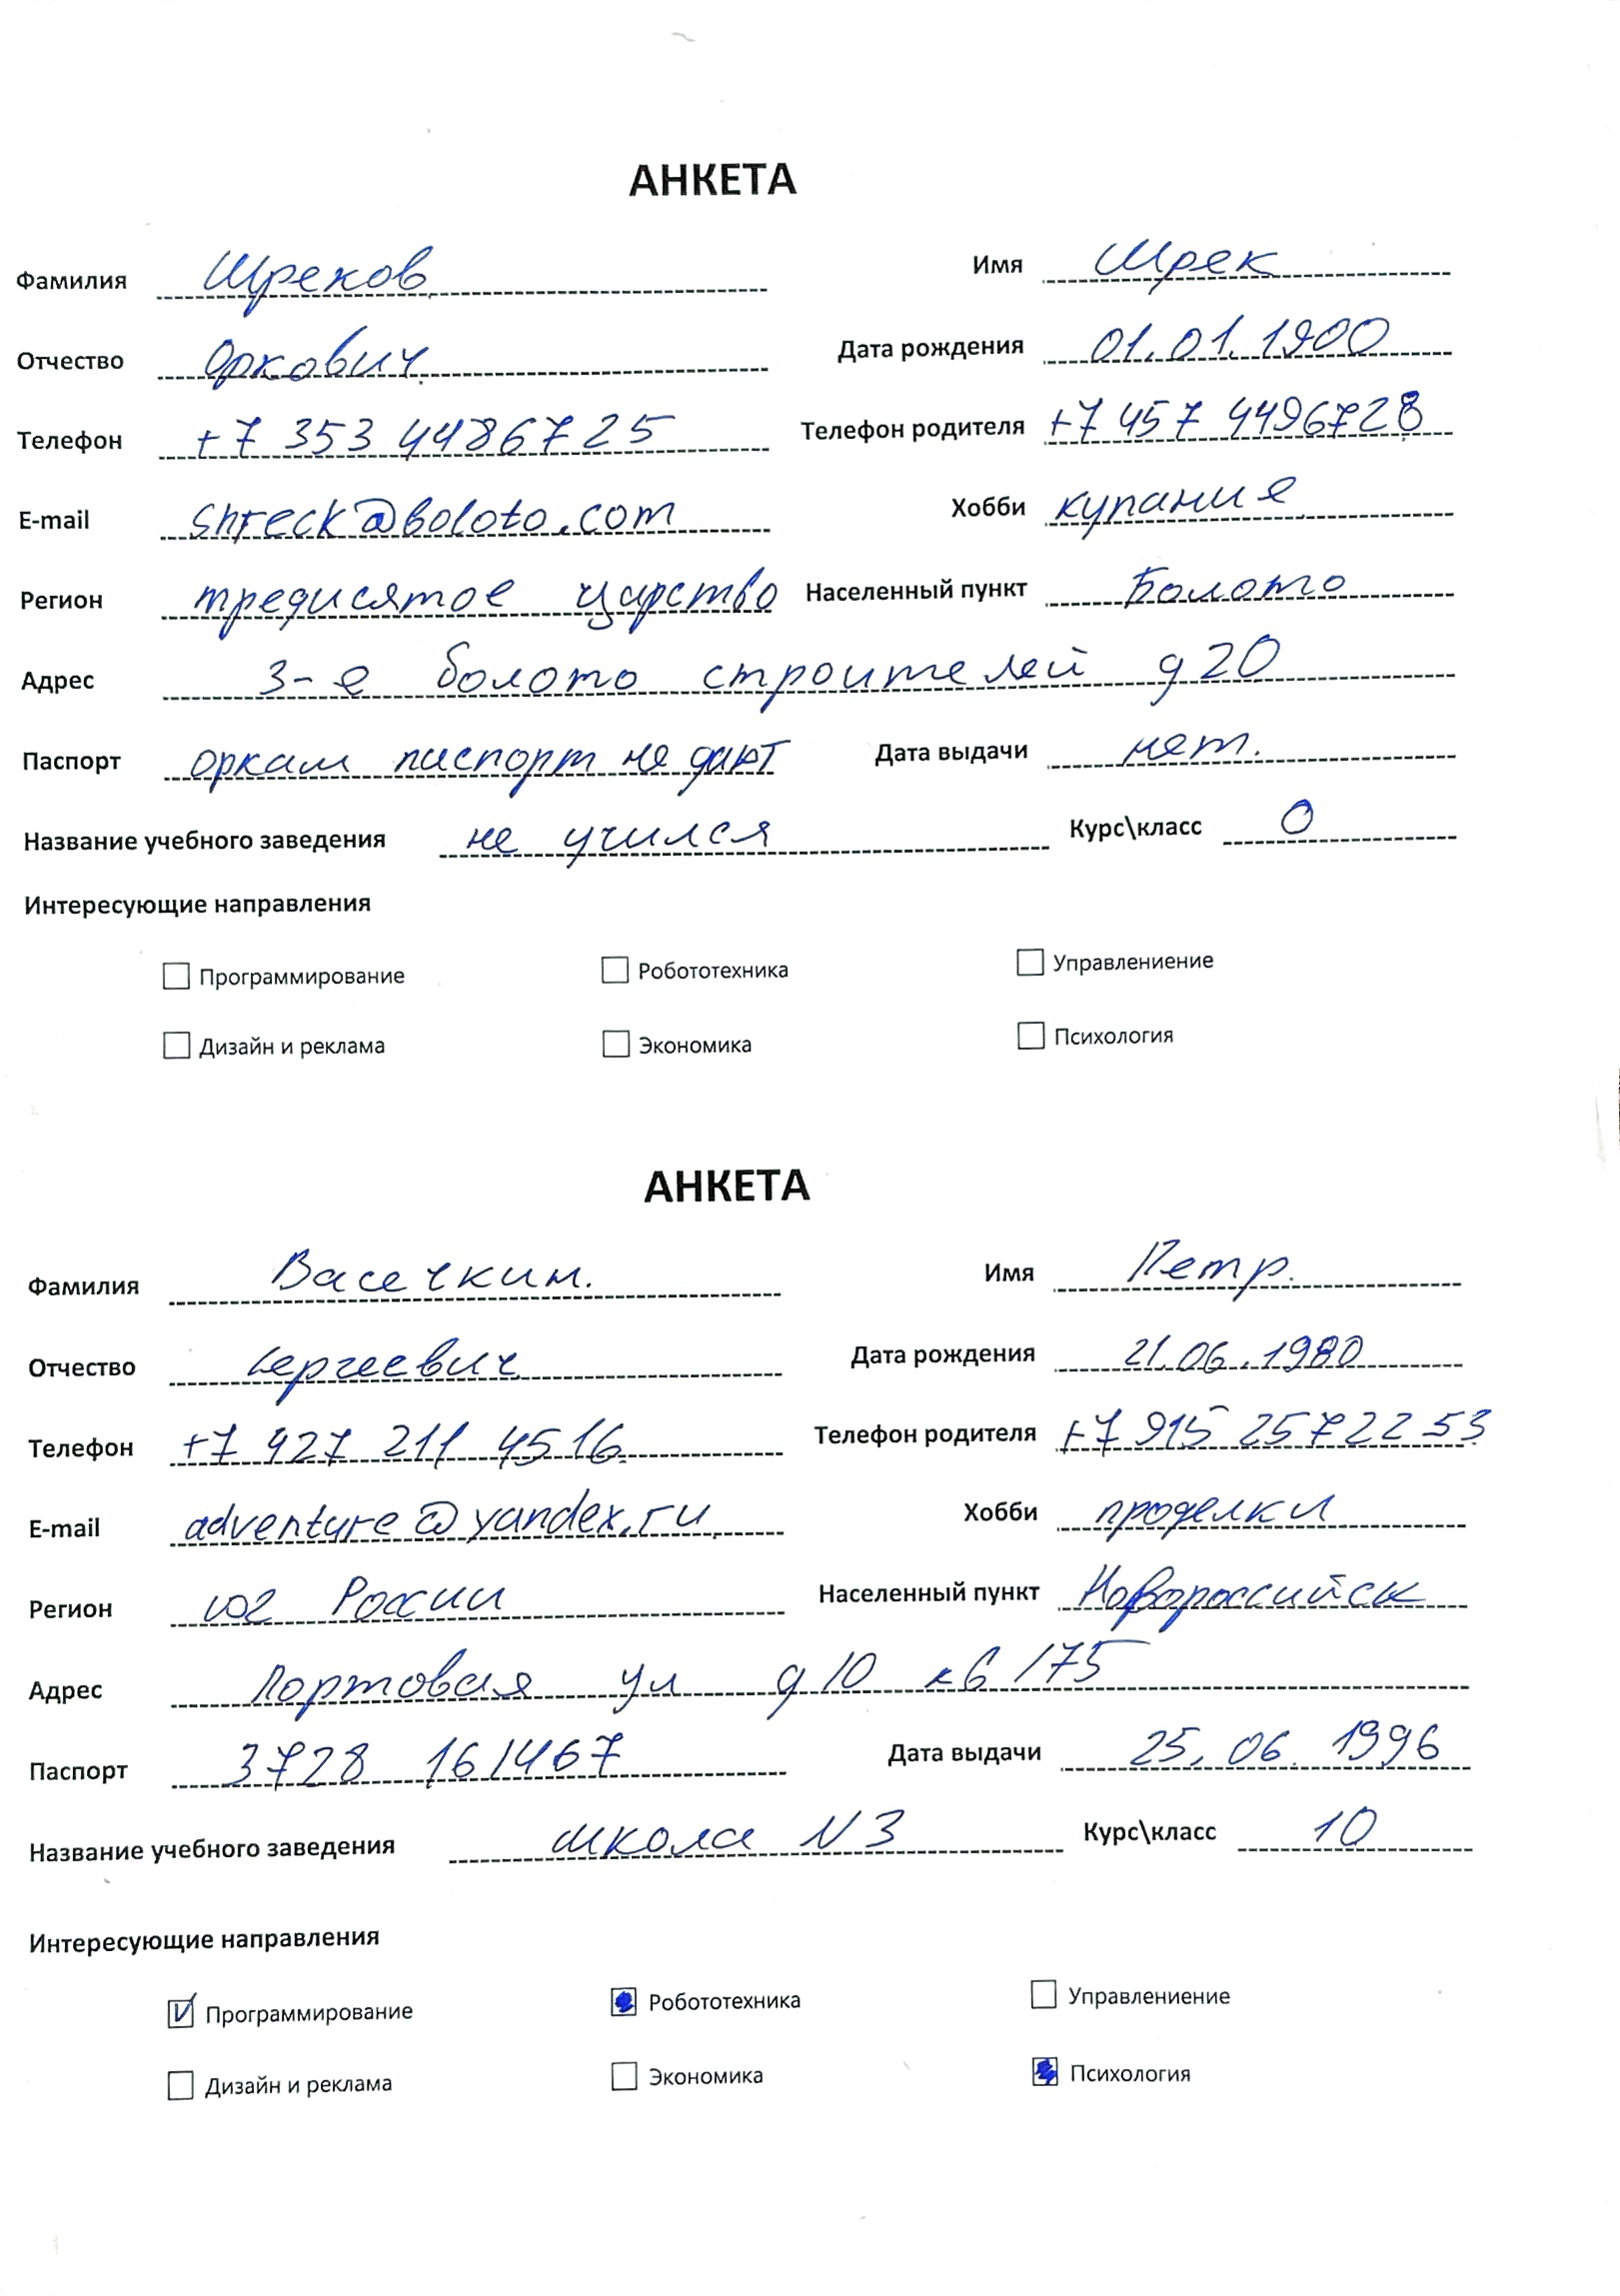 АНКЕТА
Фамилия Шреков Имя Шрек
Отчество Оркович Дата рождения 01.01.1900
Телефон +7 353 4486725 Телефон родителя +7 457 4496728
E-mail shreck@boloto.com Хобби купание
Регион тредисятое царство Населенный пункт Болото
Адрес 3-е болото строителей д 20
Паспорт оркам паспорт не дают Дата выдачи нет.
Название учебного заведения не учился Курс\класс 0
Интересующие направления
Программирование Робототехника Управлениение
Дизайн и реклама Экономика Психология
АНКЕТА
Фамилия Васечкин. Имя Петр.
Отчество Сергеевич Дата рождения 21.06.1980
Телефон +7 927 211 4516 Телефон родителя +7 915 2572253
E-mail adventure@yandex.ru Хобби проделки
Регион юг России Населенный пункт Новороссийск
Адрес Портовая ул д 10 кв 175
Паспорт 3728 161467 Дата выдачи 25.06.1996
Название учебного заведения школа N3 Курс\класс 10
Интересующие направления
Программирование Робототехника Управлениение
Дизайн и реклама Экономика Психология